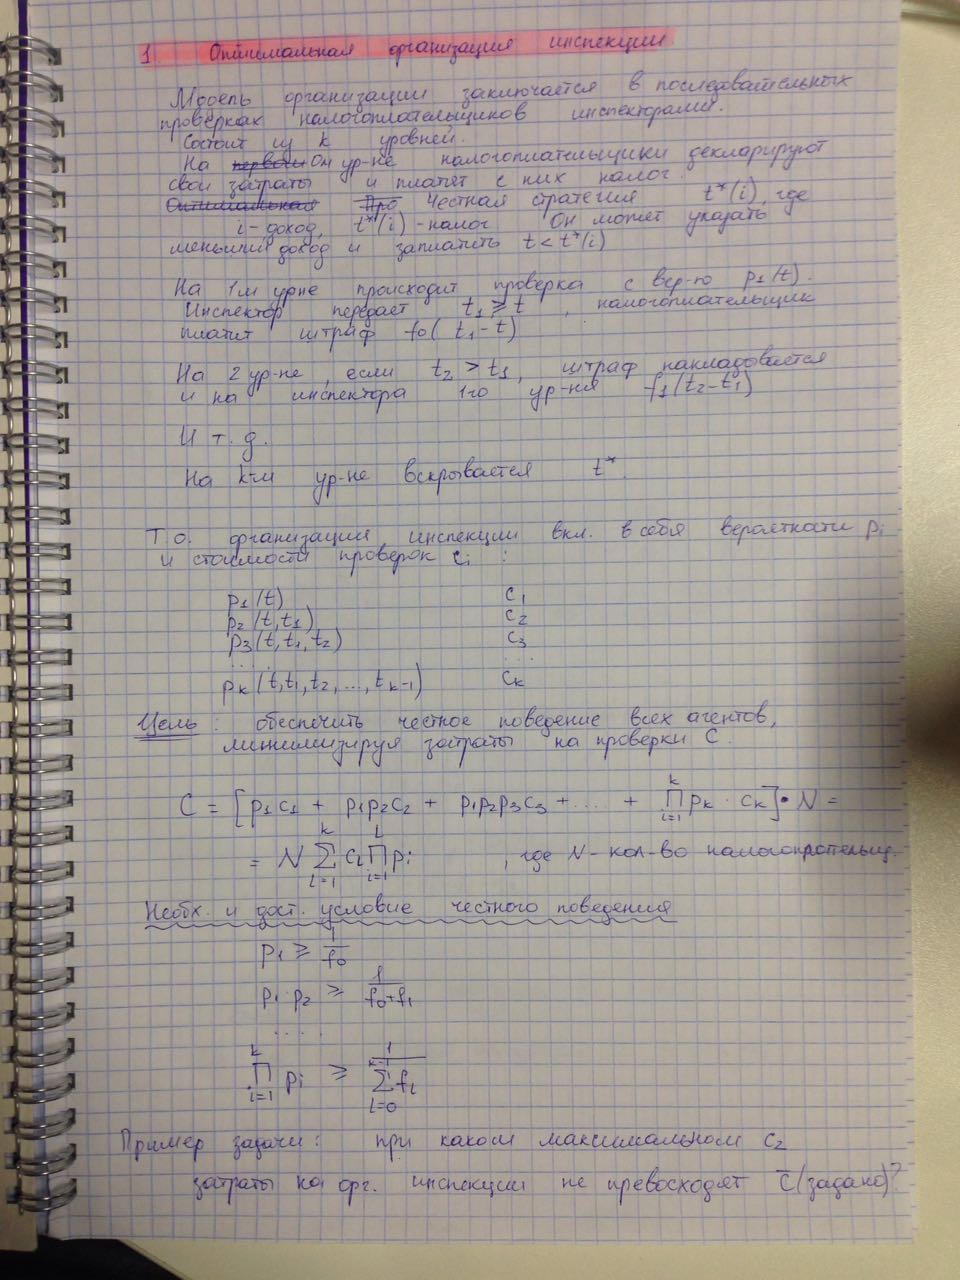 1 Оптимальная организация инспекции
Модель организации заключается в последвательных
проверках налогоплательщиков инспекторами.
Состоит из k уровней.
На первом 0м ур-не налогоплательщики декларируют
свои затраты и платят с них налог.
Оптимальная Про Честная стратегия t*(i), где
i - доход, t*(i) - налог Он может указать
меньший доход и заплатить t < t*(i)
На 1м ур-не происходит проверка с вер-ю p₁(t).
Инспектор передает t₁ ⩾ t, налогоплательщик
платит штраф f₀(t₁-t)
На 2 ур-не, если t₂ > t₁, штраф накладовается
и на инспектора 1го ур-ня f₁(t₂-t₁)
И т.д.
На k-м ур-не вскрывается t*.
Т.о. организация инспекции вкл. в себя вероятности pᵢ
и стоимости проверок cᵢ:
p₁(t) c₁
p₂(t,t₁) c₂
p₃(t,t₁,t₂) c₃
.... ....
pₖ(t,t₁,t₂,...,tₖ₋₁) cₖ
Цель: обеспечить честное поведение всех агентов,
минимизируя затраты на проверки C.
C = [p₁c₁ + p₁p₂c₂ + p₁p₂p₃c₃ + .... + ∏ᵢ₌₁ᵏ pₖ · cₖ] · N =
= N ∑ₗ₌₁ᵏ cₗ ∏ᵢ₌₁ˡ pᵢ, где N - кол-во налогоплательщ.
Необх. и дост. условие честного поведения
p₁ ⩾ 1/f₀
p₁ p₂ ⩾ 1/(f₀+f₁)
.....
∏ᵢ₌₁ᵏ pᵢ ⩾ 1/∑ₗ₌₀ᵏ⁻¹ fₗ
Пример задачи: при каком максимальном c₂
затраты на орг. инспекции не превосходят C̄ (задано)?